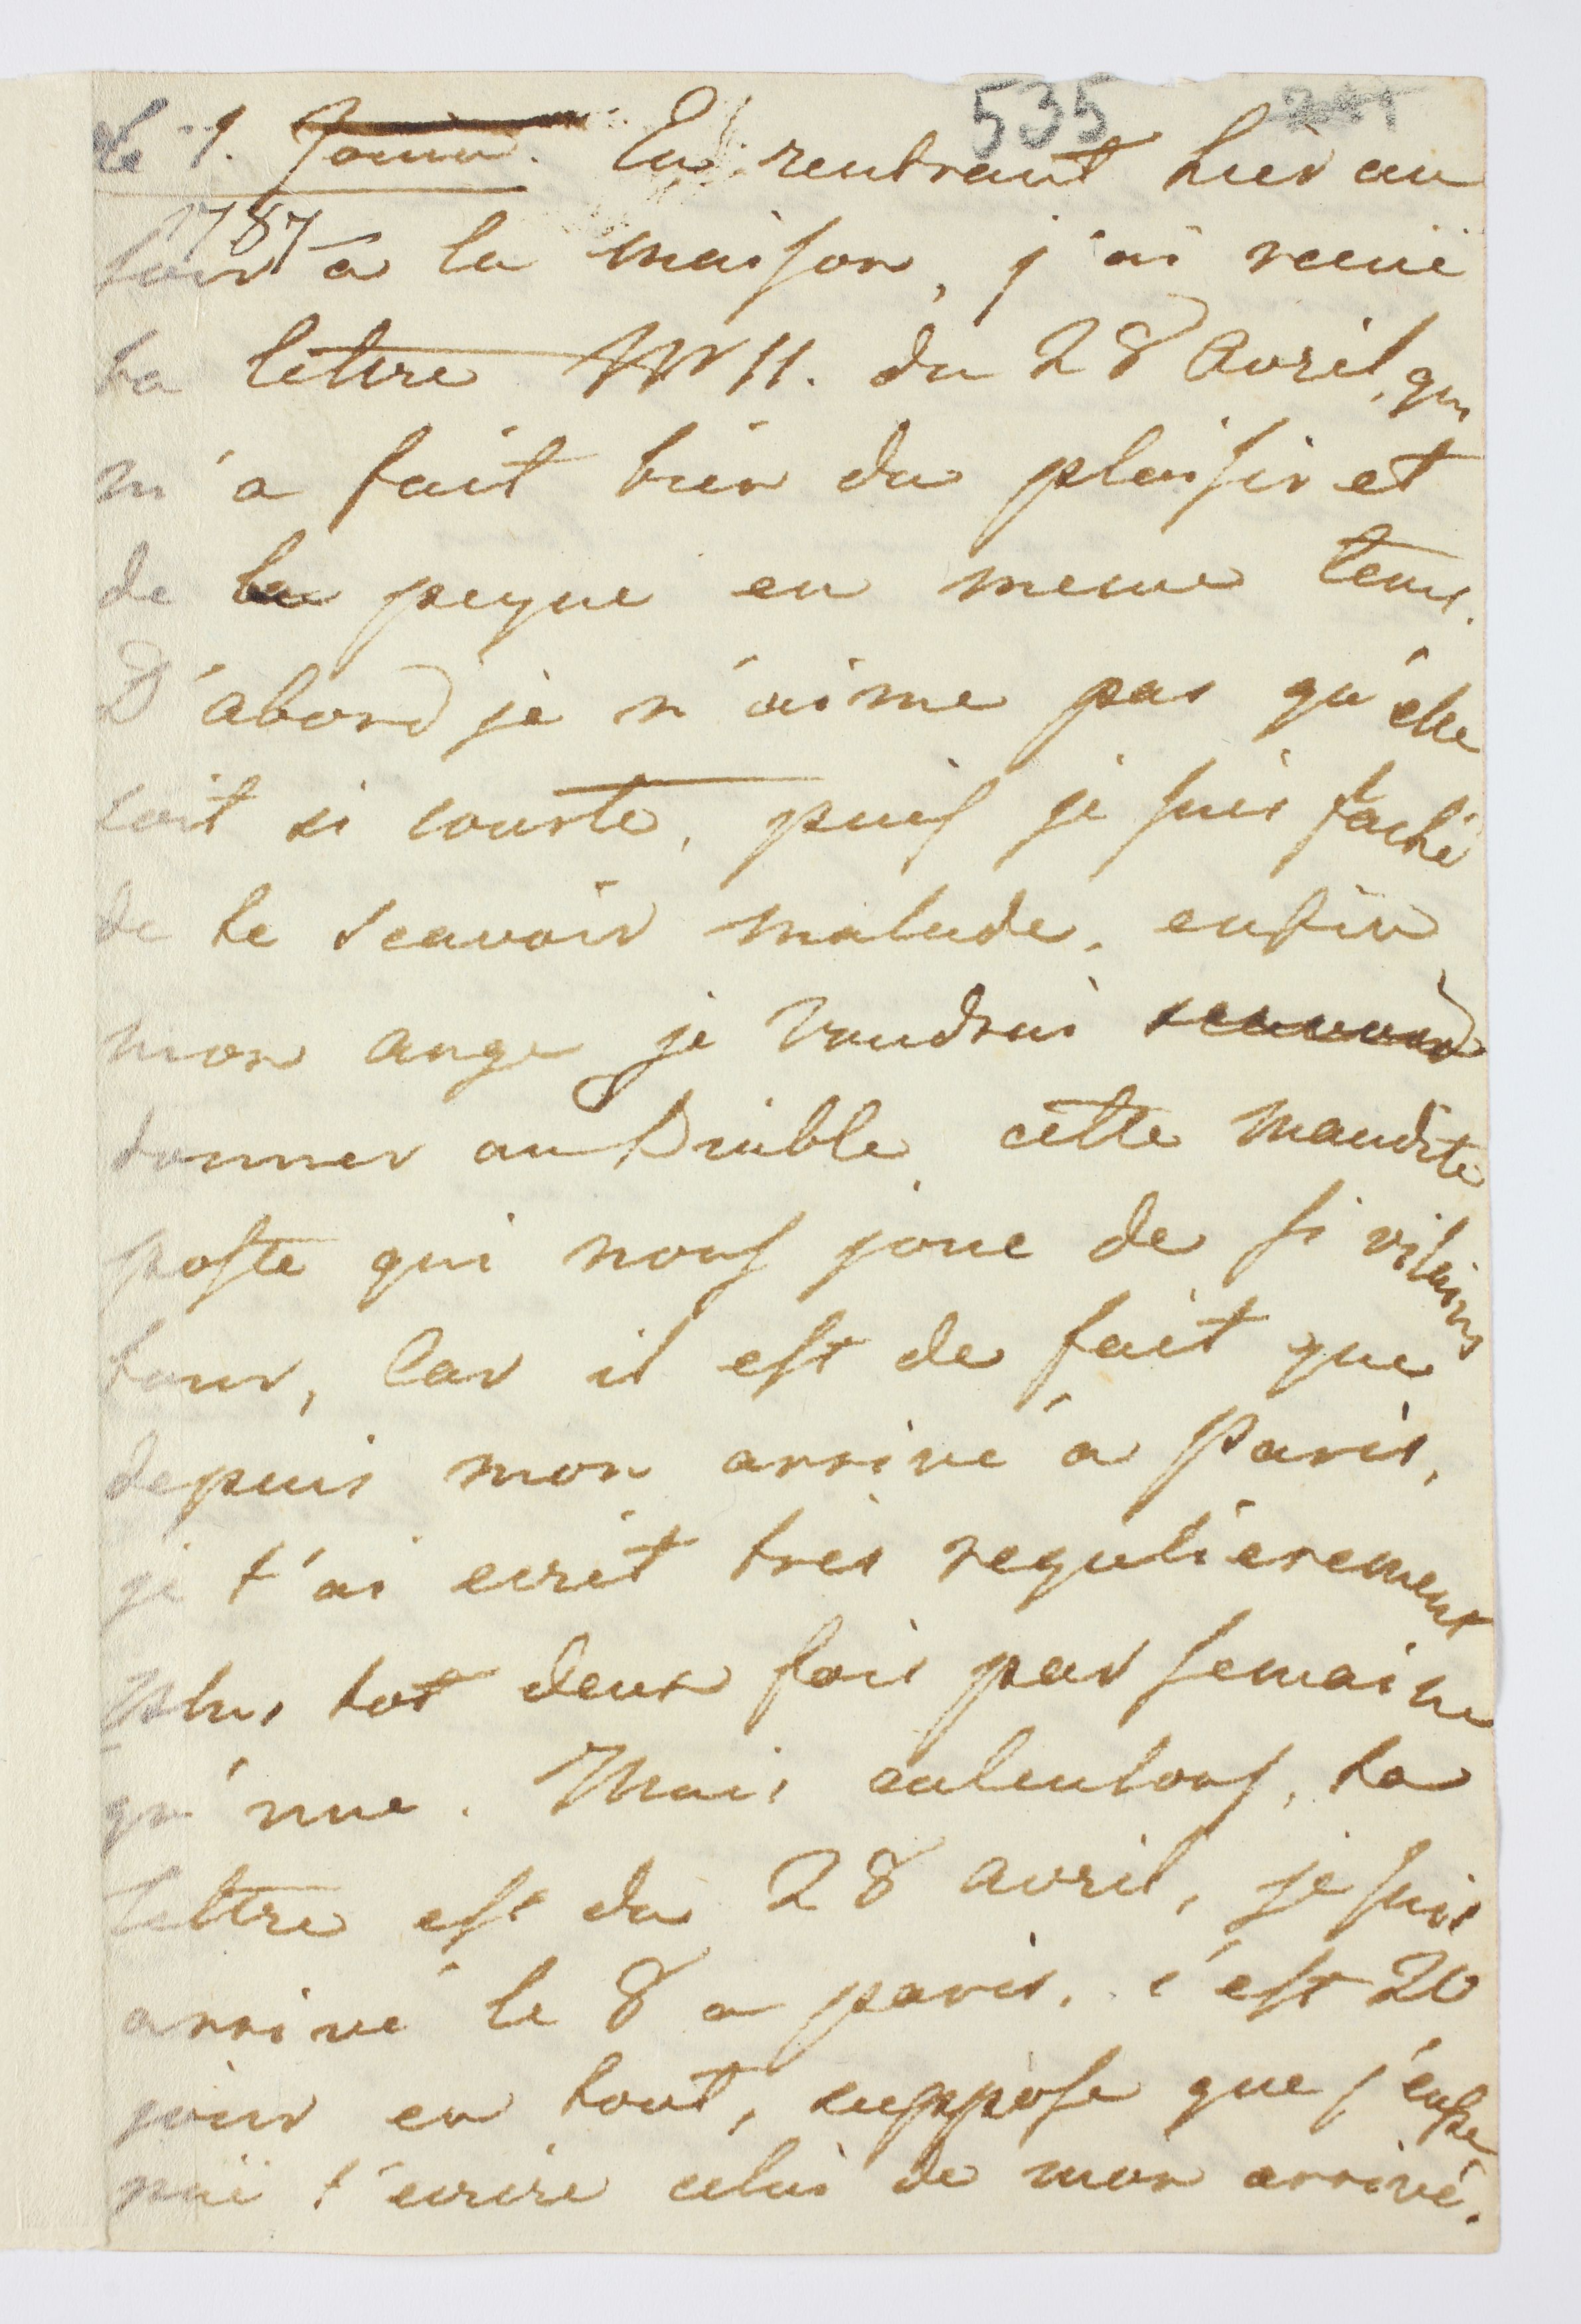 535
Le 1. En rentrant hier au
1787
soir à la maison, j'ai recüe
ta lettre N 11. du 28 Avril, qui
m'a fait bien du plaisir et
de la peyne en meme tems.
D'abord je n'aime pas qu'elle
soit si courte, puis je suis faché
de te scavoir malade, enfin
mon ange je voudrai scavoir
donner au Diable cette maudite
poste qui nous joue de si vilains
tours, Car il est de fait que
depuis mon arrivé a Paris,
je t'ai ecrit tres regulierement
plus tot deux fois par semaine
qu'une. Mais calculons, ta
lettre est du 28 avril, je suis
arrivé le 8 a paris, c'est 20
jours en tout, suppose que j'eusse
püe t'ecrire celui de mon arrivé.